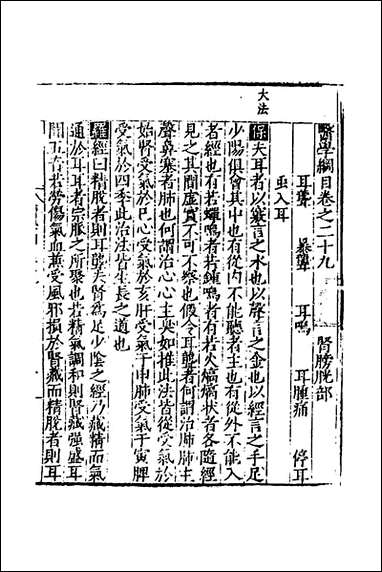 大法
醫學綱目卷之二十九　腎膀胱部
耳聾　暴聾　耳鳴　耳腫痛　停耳
虫入耳
保夫耳者以竅言之水也以聲言之金也以經言之手足
少陽俱會其中也有從內不能聽者主也有從外不能入
者經也有若蟬鳴者有若鐘鳴者有若火熇熇狀者各隨經
見之其間虛實不可不察也假令耳聾者何謂治肺肺主
聲鼻塞者肺也何謂治心心主臭如推此法皆從受氣於
始腎受氣於巳心受氣於亥肝受氣于申肺受氣于寅脾
受氣於四季此治法皆生長之道也
羅經曰精脫者則耳聾夫腎爲足少陰之經乃藏精而氣
通於耳耳者宗脈之所聚也若精氣調和則腎藏強盛耳
聞五音若勞傷氣血兼受風邪損於腎藏而精脫者則耳